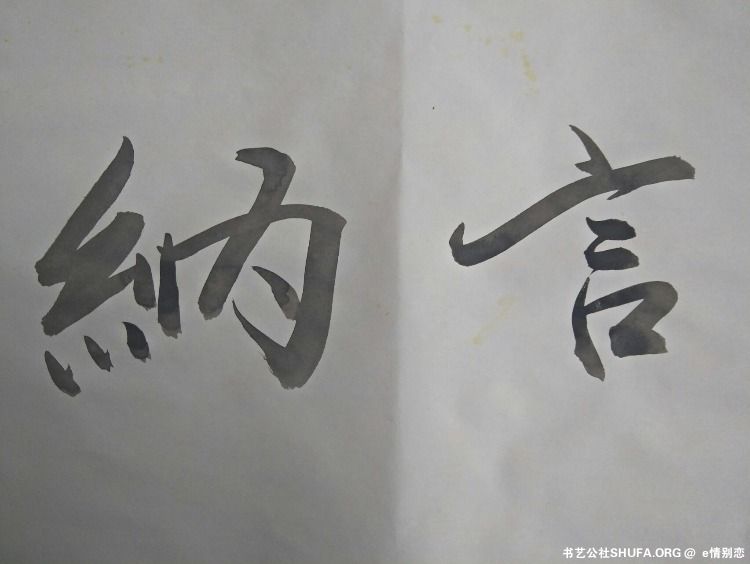 納言
书艺公社SHUFA.ORG @ e情别恋